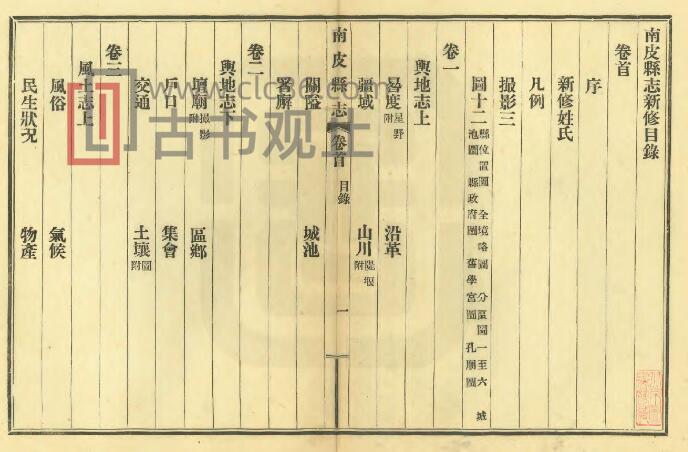 南皮縣志新修目錄
卷首
序
新修姓氏
凡例
撮影三
圖十二 縣位置圖 全境略圖 分區圖一至六 城池圖 縣政府圖 舊學宮圖 孔廟圖
卷一
輿地志上
晷度附星野 沿革
疆域 山川附隄堰
南皮縣志 卷首 目錄 一
關隘 城池
署廨
卷二
輿地志下
壇廟附撮影 區鄉
戶口 集會
交通 土壤附圖
卷三
風土志上
風俗 氣候
民生狀況 物產
www.clcx66.com
古书观止